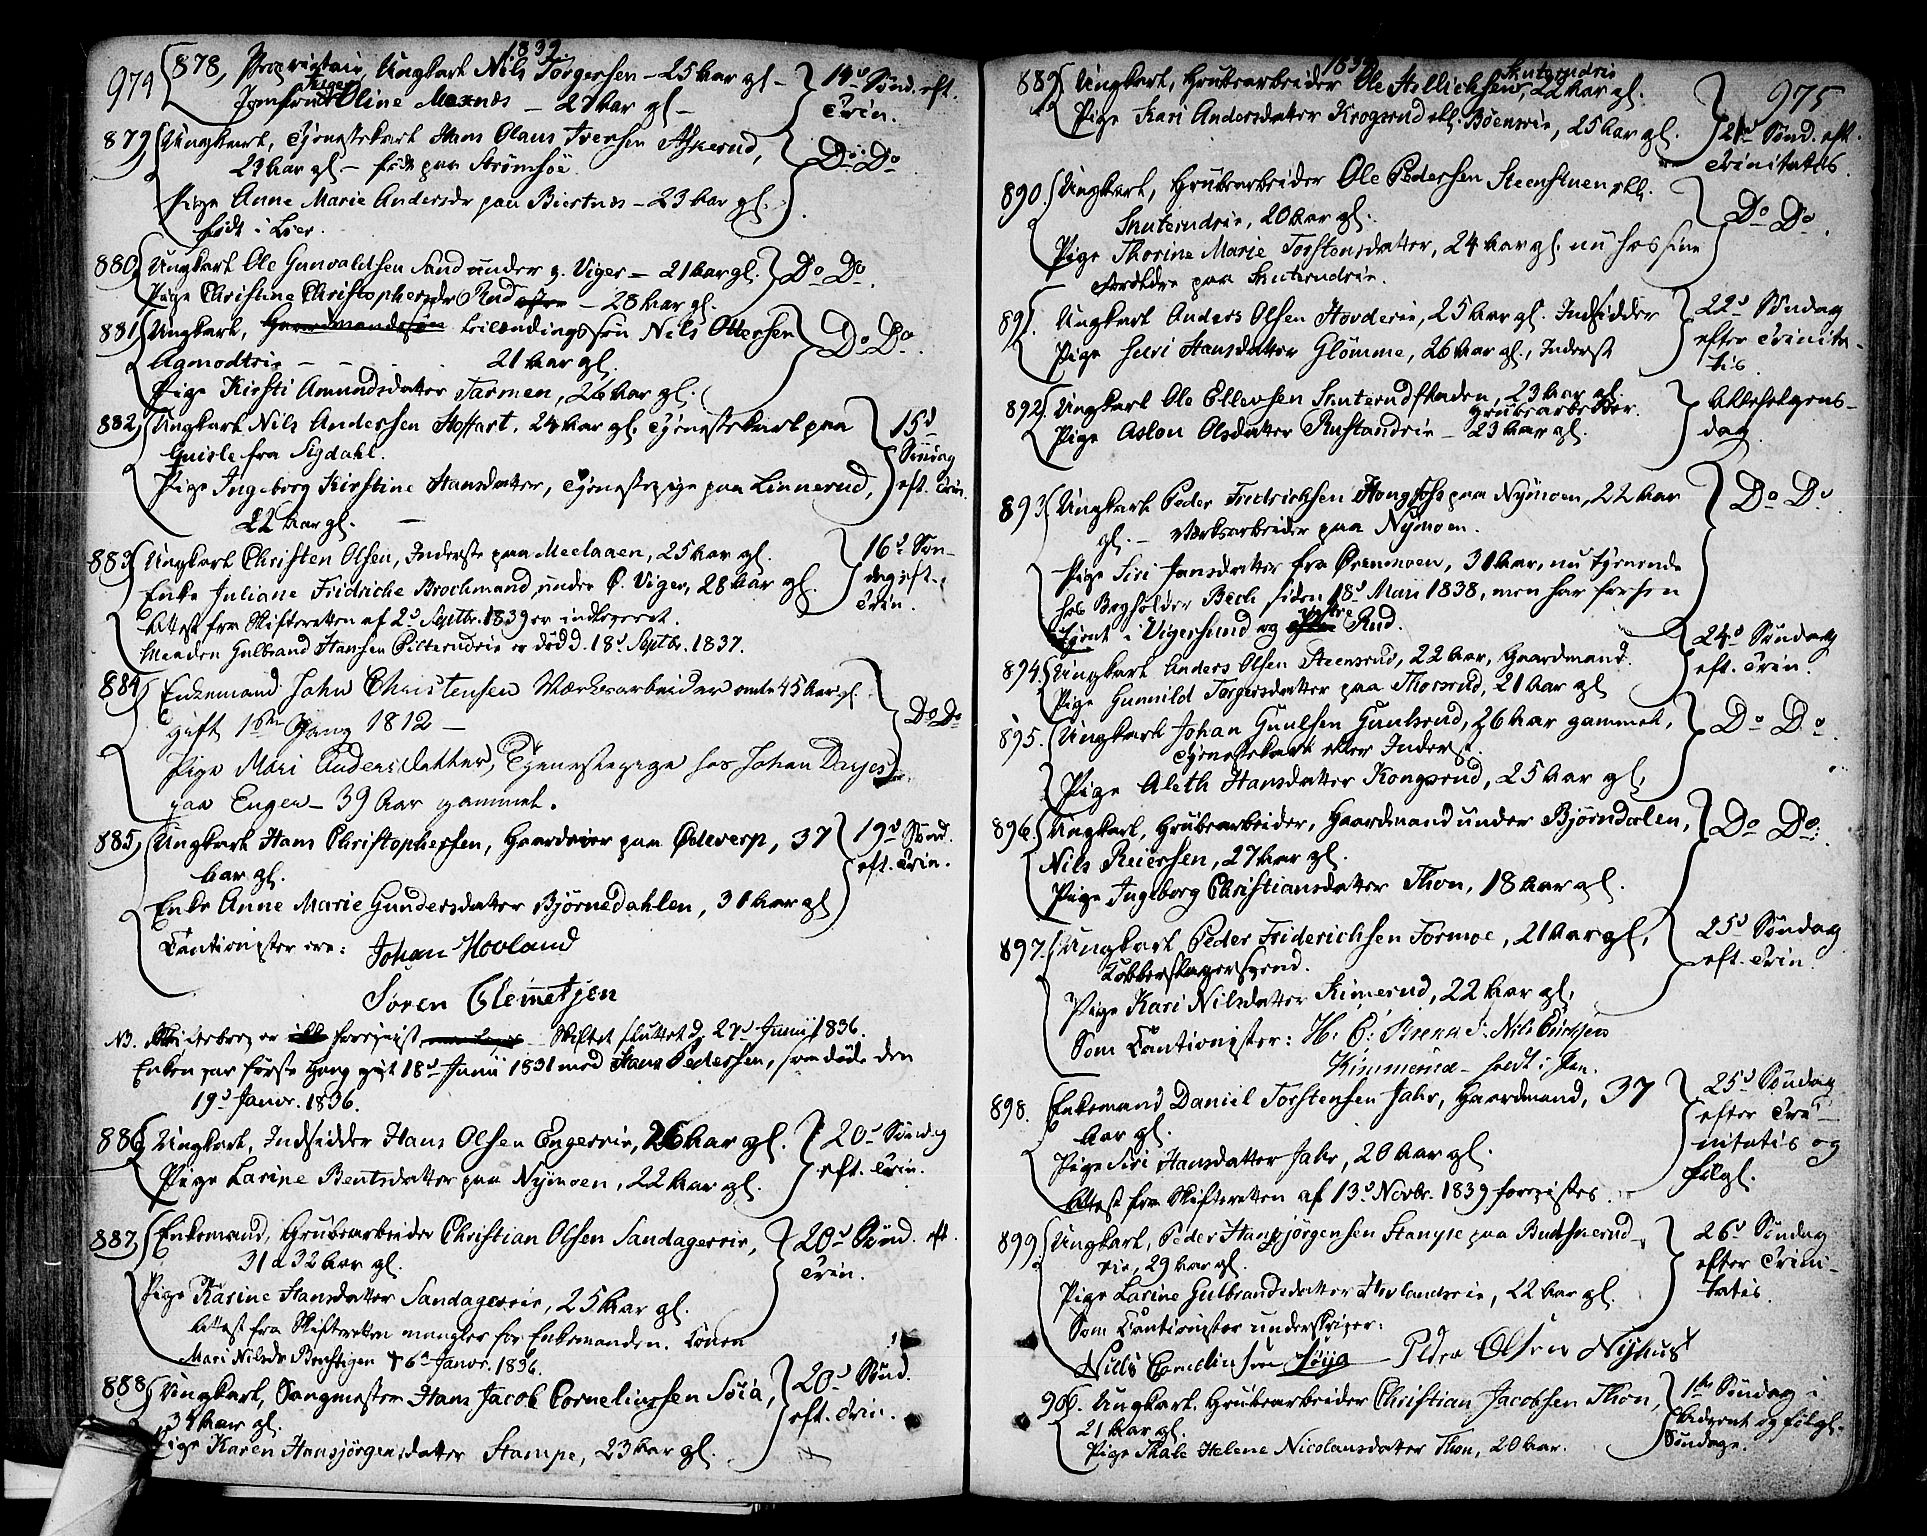 974
1839.
878, Proprietair, Ungkarl Nils Torgersen – 25 Aar gl –
Viger
Jomfrue Oline Moxnæs – 27 Aar gl –
14d Sønd. eft.
Trin.
879, Ungkarl, Tjenestekarl Hans Olaus Iversen Askerud,
23 Aar gl – født paa Strømsöe.
Pige Anne Marie Andersdr paa Biertnæs – 23 Aar gl.
født i Lier.
Do Do
880, Ungkarl Ole Gunvaldsen Sand under g. Viger – 21 Aar gl.
Pige Christine Christophersdr Rud – 28 Aar gl.
Do Do.
881, Ungkarl, Gaardmandssøn Leilændingssøn Nils Ottersen
Agmodteie – – – 21 Aar gl.
Pige Kirsti Amundsdatter Tarmen, 26 Aar gl.
Do Do.
882, Ungkarl Nils Anderssen Hoffart, 24 Aar gl. Tjenestekarl paa
fra Sigdahl.
Pige Ingeborg Kirstine Hansdatter, Tjenestepige paa Linnerud,
22 Aar gl. –
15d
Søndag
eft. Trin.
883, Ungkarl Christen Olsen, Inderste paa Meelaaen, 25 Aar gl.
Enke Juliane Fridriche Brochmand under O. Viger, 28 Aar gl.
Attest fra Skifteretten af 2d Septbr. 1839 er indleveret.
Manden Gulbrand Hansen Pitterudeie er død d. 18d Septbr. 1837.
16d Søn-
dag eft.
Trin.
884, Enkemand John Christensen Værksarbeider 45 Aar gl.
gift 1ste Gang 1812 –
Pige Mari Andersdatter, Tjenestepige hos Johan
paa Engen – 39 Aar gammel.
Do Do
885, Ungkarl Hans Christophersen, Gaardeier paa Odeverp, 37
Aar gl.
Enke Anne Marie Gundersdatter Björnedahlen, 31 Aar gl
Cautionister ere: Johan Hovland
Søren Clemetsen
19d Sønd.
eft. Trin.
NB. Skiftebrev er ikke forevist Skiftet sluttet d. 27d Junii 1836.
Enken var første Gang gift 18d Junii 1831 med Hans Pedersen, som døde den
19d Janvr. 1836.
886, Ungkarl, Indsidder Hans Olsen Engereie, 26 Aar gl.
Pige Larine Bentsdatter paa Nymoen, 22 Aar gl.
20d Søndag
eft. Trin.
887, Enkemand, Grubearbeider Christian Olsen Sandagereie,
31 a 32 Aar gl.
Pige Karine Hansdatter Sandagereie, 25 Aar gl.
Attest fra Skifteretten mangler for Enkemanden. Konen
Mari Nilsdr † 6d Janvr. 1836.
20d Sønd. eft.
Trin.
888, Ungkarl, Sangmester Hans Jacob Corneliussen Söia,
34 Aar gl.
Pige Karen Hansjörgensdatter Stampe, 23 Aar gl.
20d Sønd.
eft. Trin.
975
1839
889, Ungkarl, Grubearbeider Ole Hellichsen, 22 Aar gl.
Snuterudeie
Pige Kari Andersdatter Krogsrud ell. Böenseie, 25 Aar gl.
21d Sønd. eft.
Trinitatis.
890. Ungkarl, Grubearbeider Ole Pedersen Steenstuen ell.
Snuterudeie, 20 Aar gl.
Pige Thorine Marie Torstensdatter, 24 Aar gl. nu hos sine
Forældre paa Snuterudeie.
Do Do.
891. Ungkarl Anders Olsen Hovdeeie, 25 Aar gl. Indsidder
Pige Guri Hansdatter Glömme, 26 Aar gl., Inderst
22d Søndag
efter Trinita-
tis.
892. Ungkarl Ole Ellevsen Snuterudstaden, 23 Aar gl.
Grubearbeider.
Pige Aslou Olsdatter Rustandeie – 23 Aar gl.
Allehelgens-
dag
893, Ungkarl Peder Fredrichsen Hongfoss paa Nymoen, 22 Aar
gl. – Værksarbeider paa Nymoen.
Pige Siri Jansdatter fra Ørenmoen, 31 Aar, nu tjenende
hos Bogholder Bech siden 18d Maii 1838, men har forhen
tjent i Vigersund og østre vestre Rud.
Do Do.
894. Ungkarl Anders Olsen Steensrud, 22 Aar, Gaardmand.
Pige Gunnild Torgersdatter paa Thorsrud, 21 Aar gl
24d Søndag
eft. Trin.
895. Ungkarl Johan Guulsen Guulsrud, 26 Aar gammel,
Tjenestekarl eller Inderst.
Pige Aleth Hansdatter Kongsrud, 25 Aar gl,
Do Do.
896. Ungkarl, Grubearbeider, Gaardmand under Bjørndalen,
Nils Reiersen, 27 Aar gl.
Pige Ingeborg Christiansdatter Thon, 18 Aar gl.
Do Do.
897. Ungkarl Peder Friderichsen Formoe, 21 Aar gl,
Kobberslagersvend.
Pige Kari Nilsdatter Kimerud, 22 Aar gl,
Som Cautionister: H: C: Nils Erichsen
Kimmerud – holdt i Pen.
25d Søndag
eft. Trin.
898. Enkemand Daniel Torstensen Jahr, Gaardmand, 37
Aar gl.
Pige Siri Hansdatter Jahr, 20 Aar gl.
Attest fra Skifteretten af 13d Novbr. 1839 forevistes.
25d Søndag
efter Tri-
nitatis og
følgl.
899. Ungkarl, Peder Hansjørgensen Stampe paa Buskerud-
eie, 29 Aar gl.
Pige Larine Gulbrandsdatter Hovlandseie, 22 Aar gl.
Som Cautionister underskriver:
Niels Corneliusen Söya – Peder Olsen Nyhus
26d Søndag
efter Trini-
tatis.
900. Ungkarl. Grubearbeider Christian Jacobsen Thon,
21 Aar gl.
Pige Thale Helene Nicolausdatter Thon, 20 Aar.
1ste Søndag i
Advent og følgl.
Søndage.